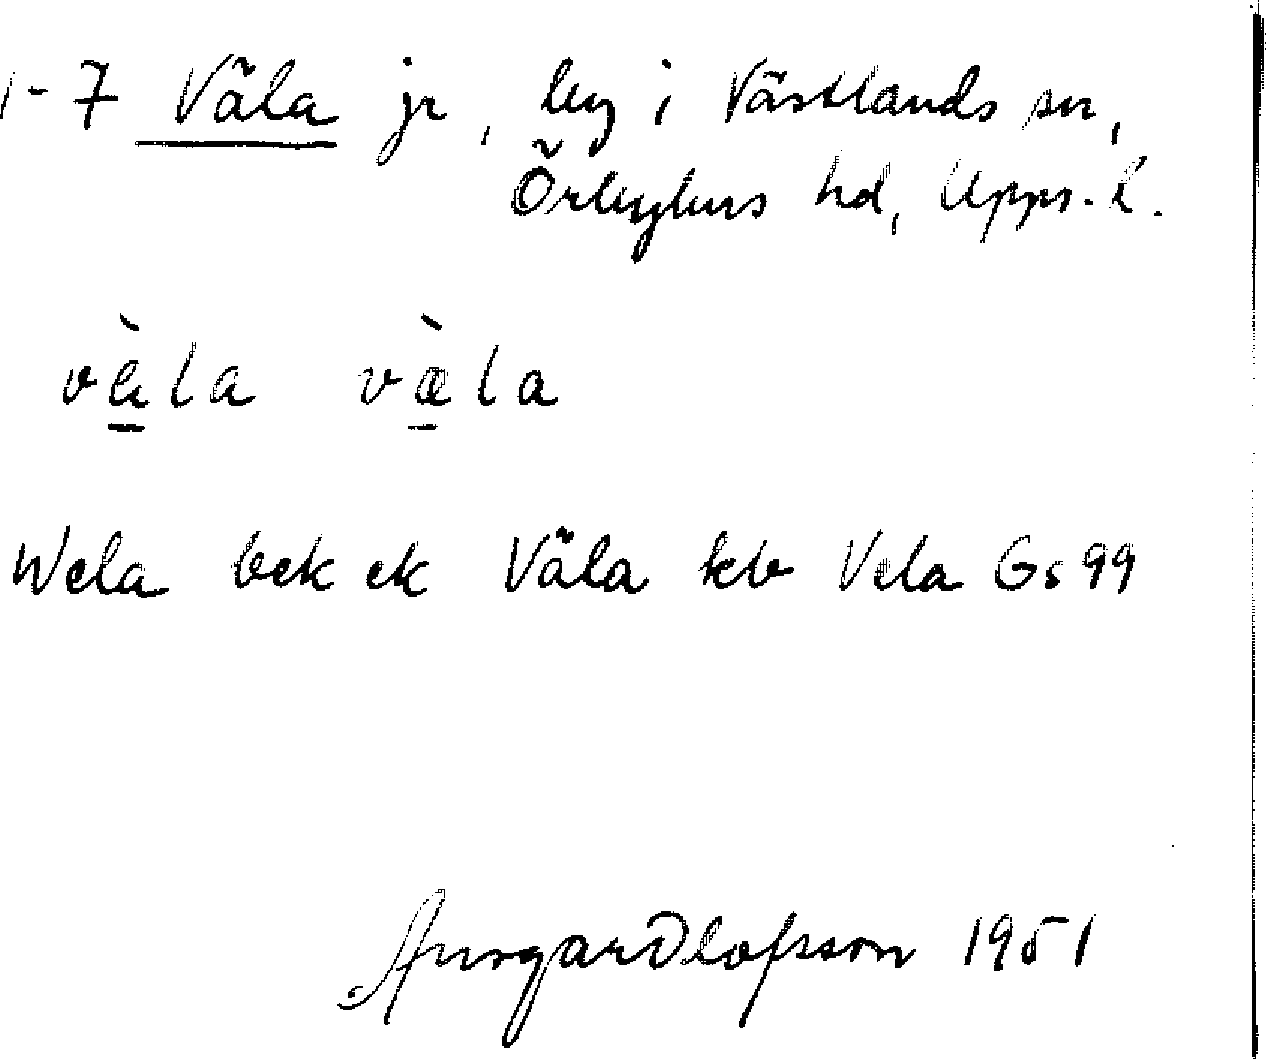 1-7 Väla jr, by i Västlands sn,
Örbyhus hd, Upps. l.
vàla væ̀la
Wela bek ek Väla kb Vela Gs 99
Ansgar Olofsson 1951